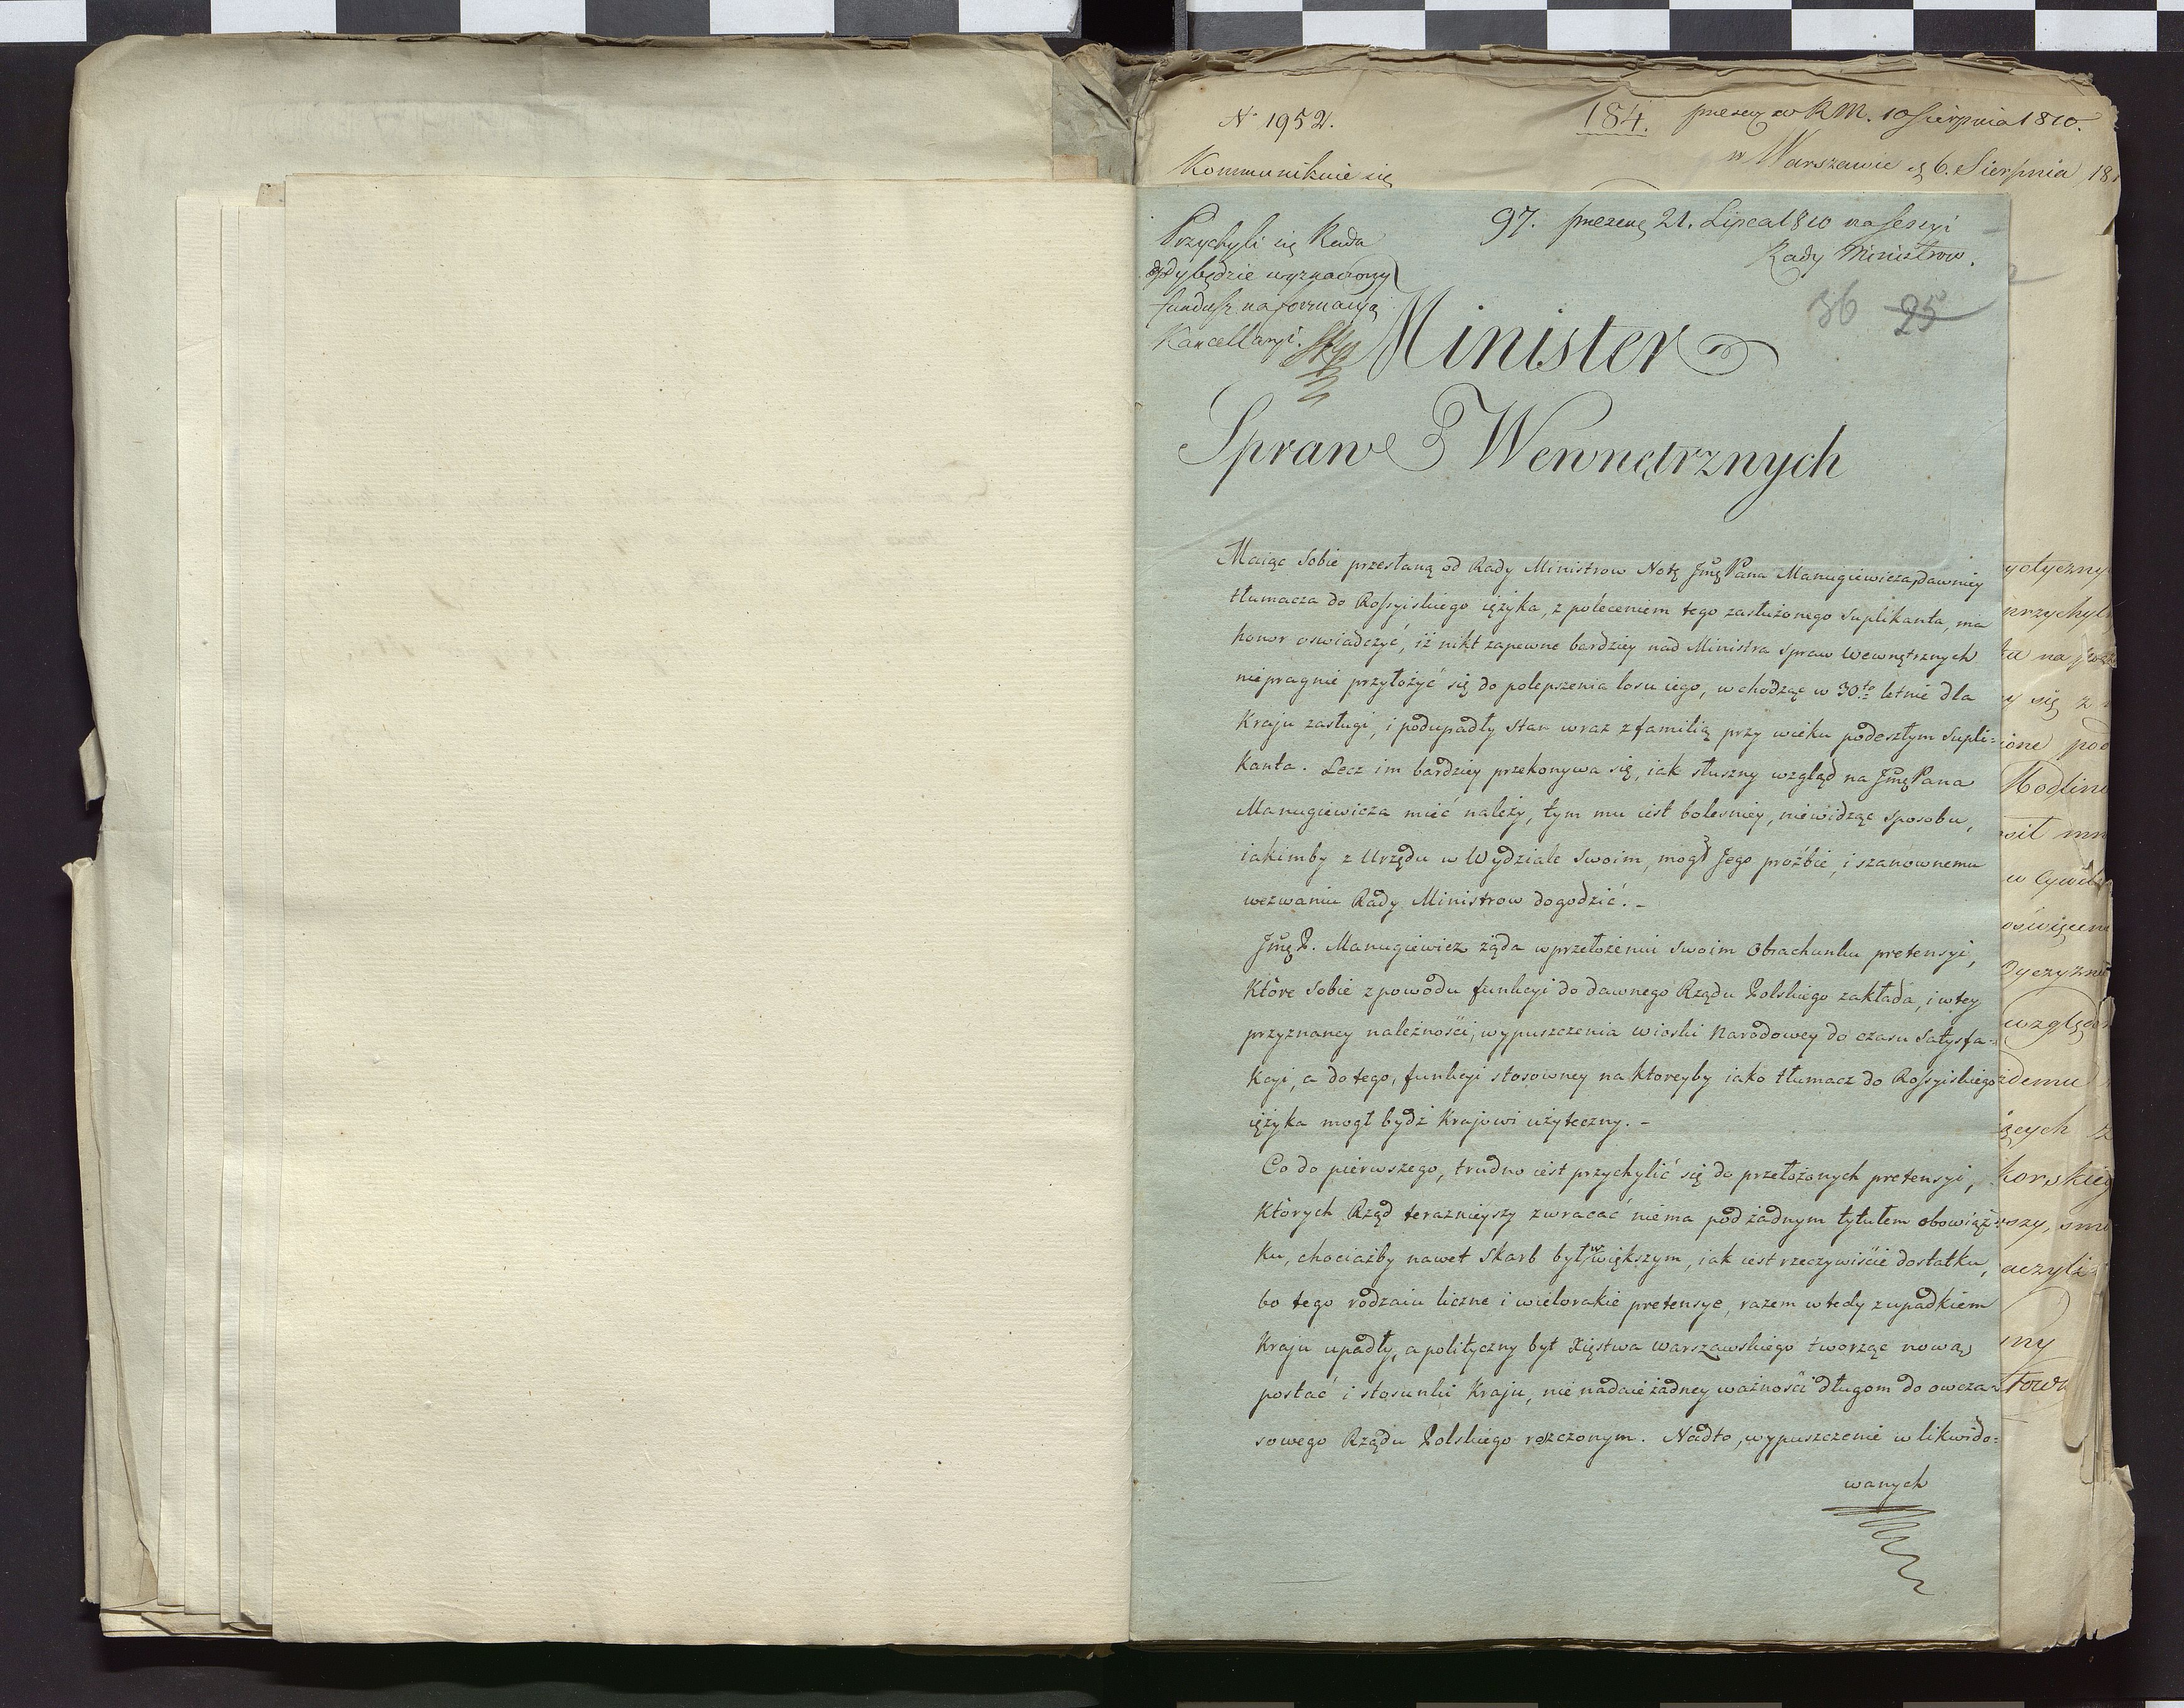 N° 1952.
184. presen. w R M. 10 Sierpnia 1810.
w Warszawie d. 6. Sierpnia 18
Kommunikuie się
Przychyli się Rada
gdy będzie wyznaczony
fundusz na formacyą
Kancellaryi.
97. prezent. 21. Lipca 1810 na sessyi
Rady Ministrow.
36 25
Minister
Spraw Wewnętrznych
Maiąc sobie przesłaną od Rady Ministrow Notę Jmę Pana Manugiewicza, dawniey
tłumacza do Rossyiskiego ięzyka, z poleceniem tego zasłużonego Suplikanta, ma
honor oswiadczyć, iż nikt zapewne bardziey nad Ministra Spraw Wewnętrznych
niepragnie przyłożyć się do polepszenia losu iego, wchodząc w 30to letnie dla
Kraju zasługi, i podupadły stan wraz z familią przy wieku podeszłym Supli=
kanta. Lecz im bardziey przekonywa się, iak słuszny wzgląd na Jmę Pana
Manugiewicza mieć należy, tym mu iest bolesniey, niewidząc sposobu,
iakimby z Urzędu w Wydziale swoim, mogł Jego proźbie, i szanownemu
wezwaniu Rady Ministrow dogodzić. -
Jmę P. Manugiewicz żąda w przełożeniu swoim Obrachunku pretensyi,
Które sobie z powodu funkcyi do dawnego Rządu Polskiego zakłada, i w tey
przyznaney należności, wypuszczenia wioski Narodowey do czasu Satysfa-
kcyi, a do tego, funkcyi stosowney na Ktoreyby iako tłumacz do Rossyiskiego
ięzyka mogł bydź Krajowi użyteczny. -
Co do pierwszego, trudno iest przychylić się do przełożonych pretensyi,
Których Rząd terazniejszy zwracać niema pod żadnym tytułem obowiąz=
ku, chociażby nawet Skarb był w większym, iak iest rzeczywiście dostatku,
bo tego rodzaiu liczne i wielorakie pretensye, razem wtedy z upadkiem
Kraju upadły, a polityczny byt Xięstwa Warszawskiego tworząc nową
postać i stosunki Kraju, nie nadaie żadney ważności długom do owcza-
sowego Rządu Polskiego roszczonym. Nadto, wypuszczenie w likwido=
wanych